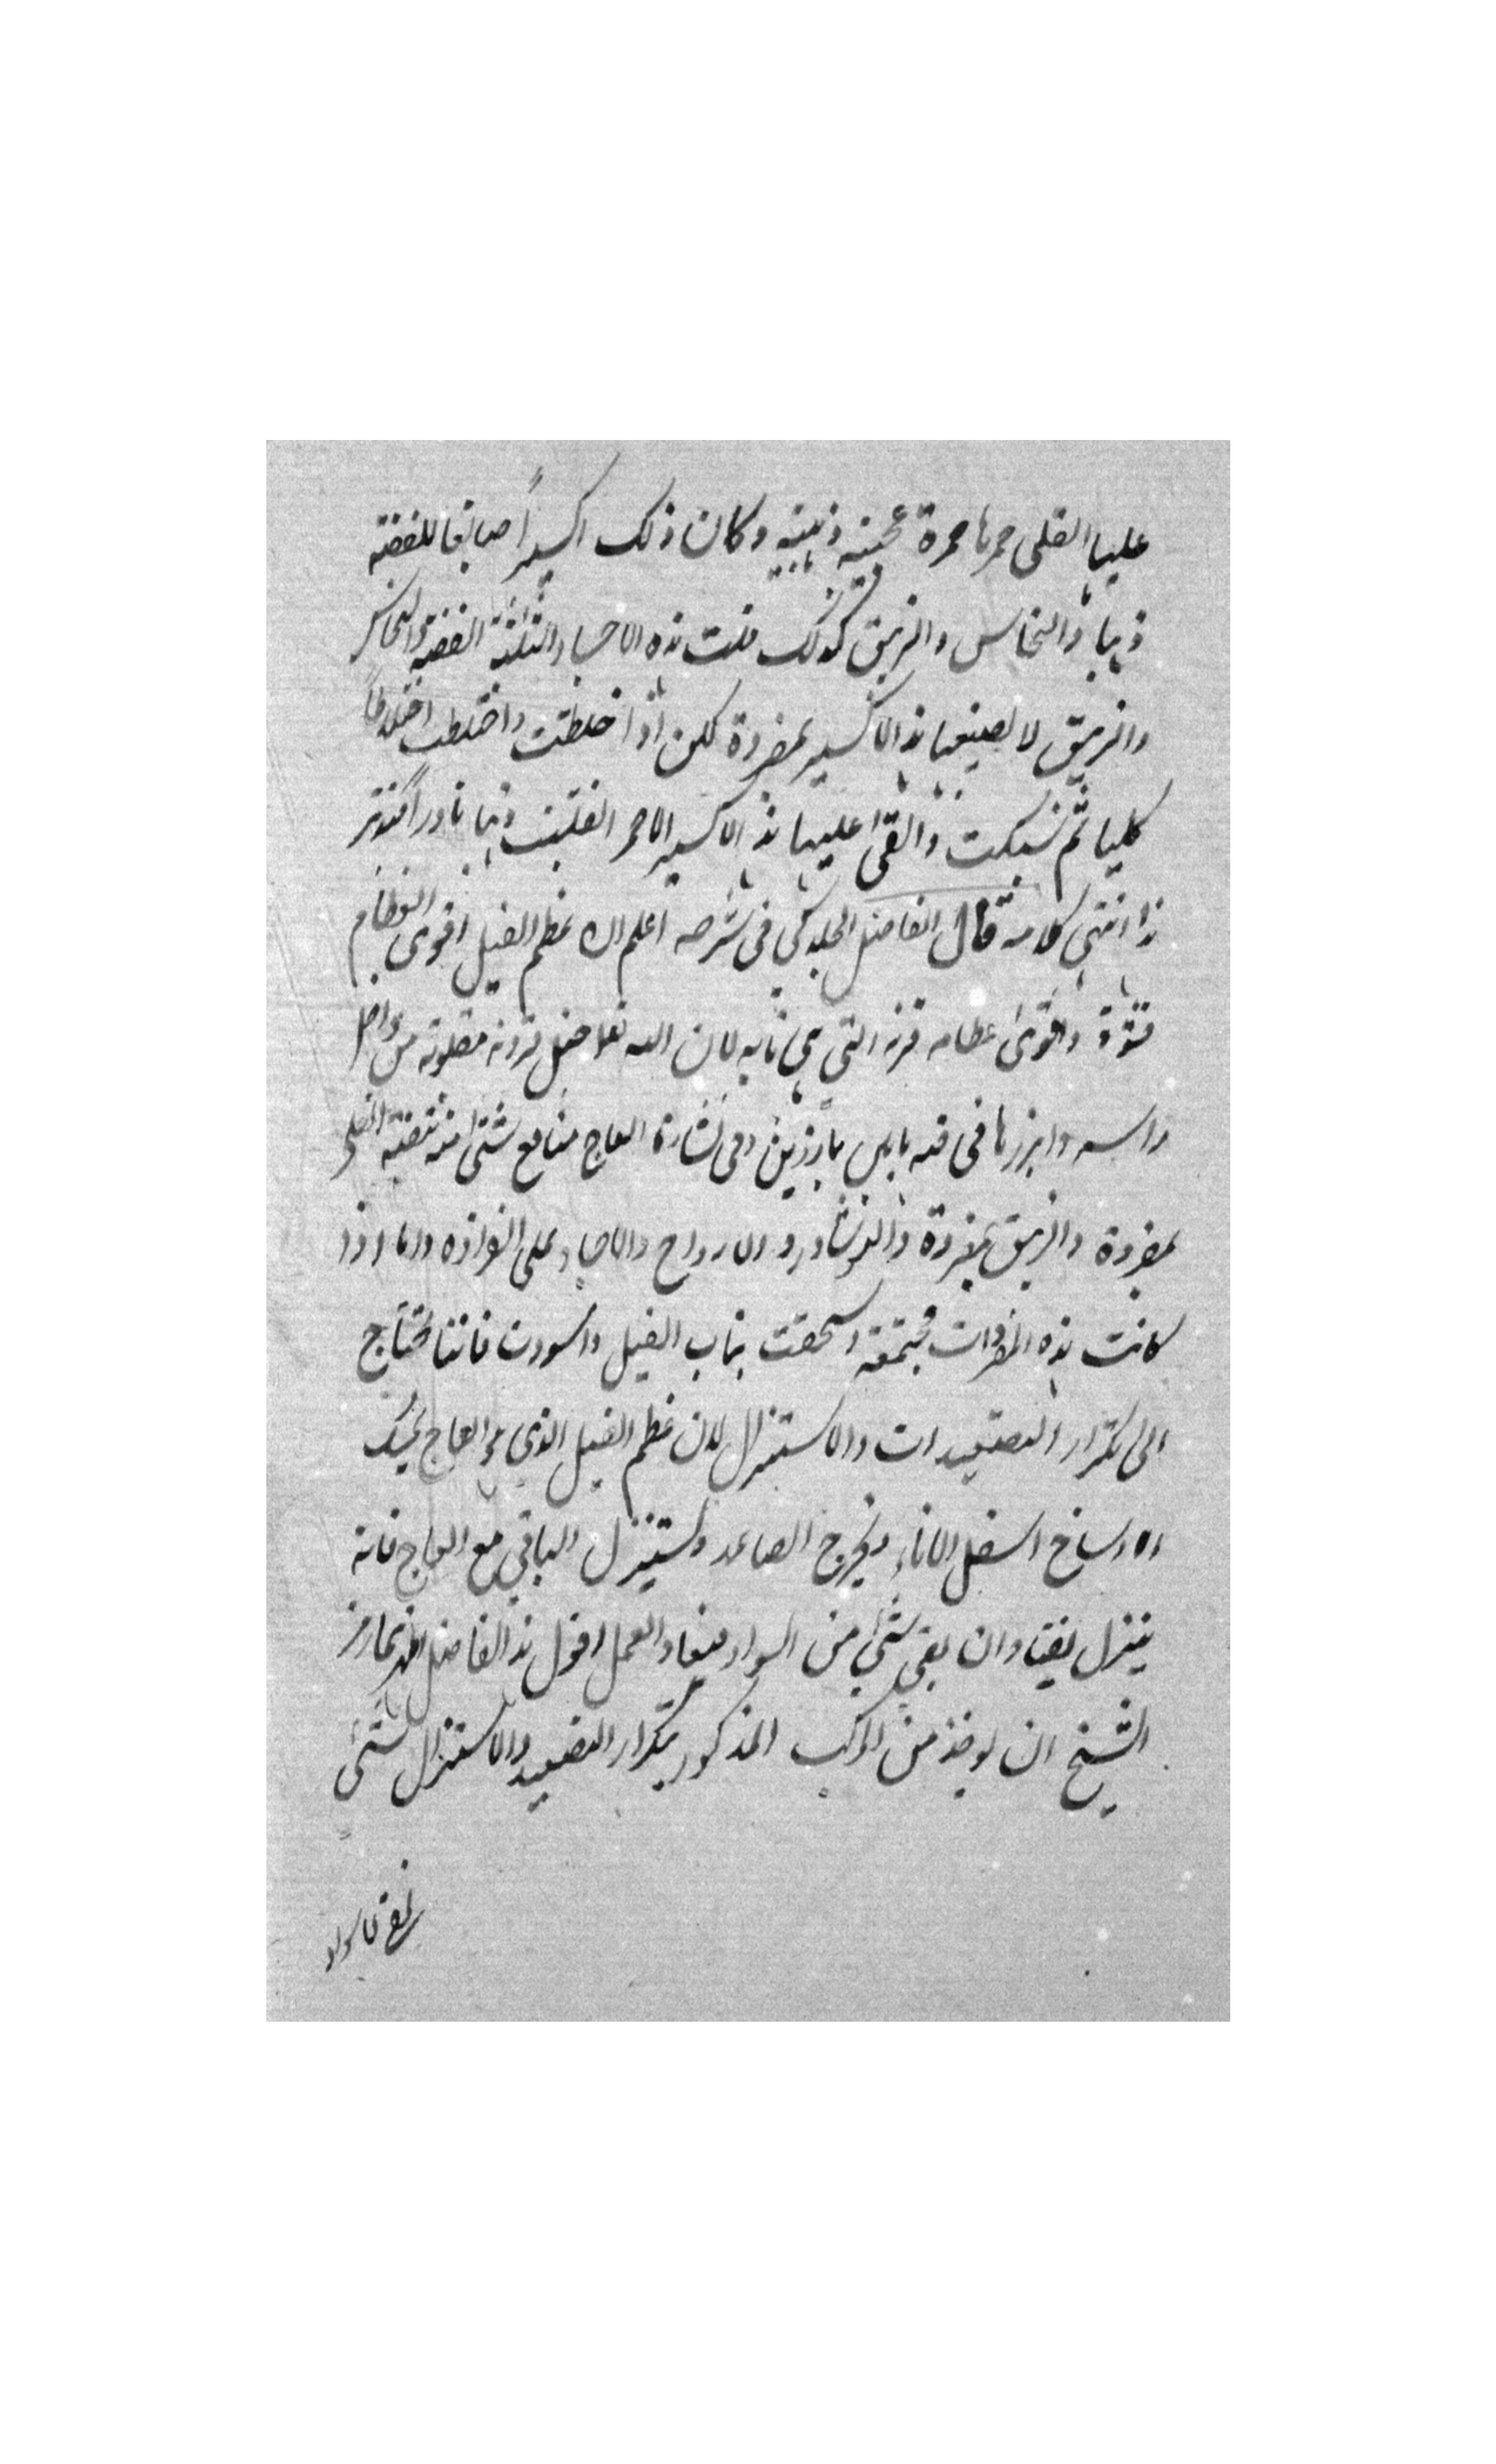 عليها القلى حمرها حمرة عجيبة ذهبية وكان ذلك اكسيراً صابغا للفضة
ذهبا والنحاس والزيبق كذلك قلت هذه الاجساد الثلثة الفضة والنحاس
والزيبق لا يصبغها هذا الاكسير بمفردة لكن اذا خلطت واختلطت اختلاطاً
كليا ثم سبكت والقى عليها هذا الاكسير الاحمر انقلبت ذهبا نادراً
هذا انتهى كلامه قال الفاضل الجلدكى فى شرحه اعلم ان عظم الفيل اقوى العظام
قوة واقوى عظامه قرنه التي هي نابه لان الله تعا جعل قرونه مقلوبة من
راسه وابرزها فى فيه نابين بارزين وفى نشارة العاج منافع شتى منه تنقية القلى
بمفردة والزيبق بمفردة والنوشادر والارواح والاجساد على انفراده واما اذا
كانت هذه المفردات مجتمعة وسحقت بناب الفيل واسودت فانها تحتاج
الى تكرار التصعيدات والاستنزال لان عظم الفيل الذى هو العاج يمسك
الاوساخ اسفل الاناء ويخرج الصاعد ويستنزل الباقي مع العاج فانه
ينزل نقيا وان بقى شئ من السواد فيعاد العمل اقول هذا الفاضل اظهر بما رمز
الشيخ ان يوخذ من المركب المذكور بتكرار التصعيد والاستنزال شئ